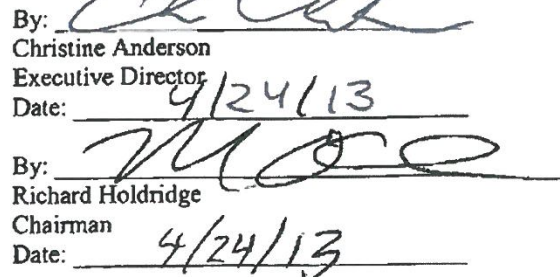 By:
Christine Anderson
Executive Director
Date: 4/24/13
By:
Richard Holdridge
Chairman
Date: 4/24/13